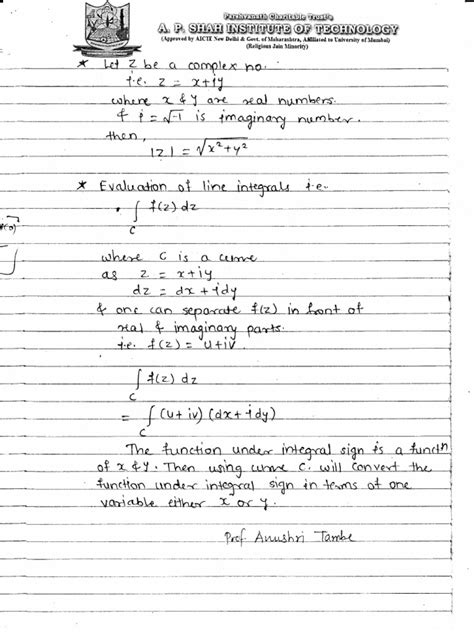 Parshvanath Charitable Trust's
A. P. SHAH INSTITUTE OF TECHNOLOGY
(Approved by AICTE New Delhi & Govt. of Maharashtra, Affiliated to University of Mumbai)
(Religious Jain Minority)
* Let z be a complex no.
i.e. z = x+iy
where x & y are real numbers.
& i = √-1 is imaginary number.
then,
|z| = √x²+y²
* Evaluation of line integrals i.e.
∫ f(z) dz
C
where C is a curve
as z = x+iy
dz = dx + idy
& one can separate f(z) in front of
real & imaginary parts.
i.e. f(z) = u+iv
∫ f(z) dz
C
= ∫ (u+iv) (dx+idy)
C
The function under integral sign is a functn
of x & y. Then using curve C. will convert the
function under integral sign in terms of one
variable either x or y.
Prof. Anushri Tambe